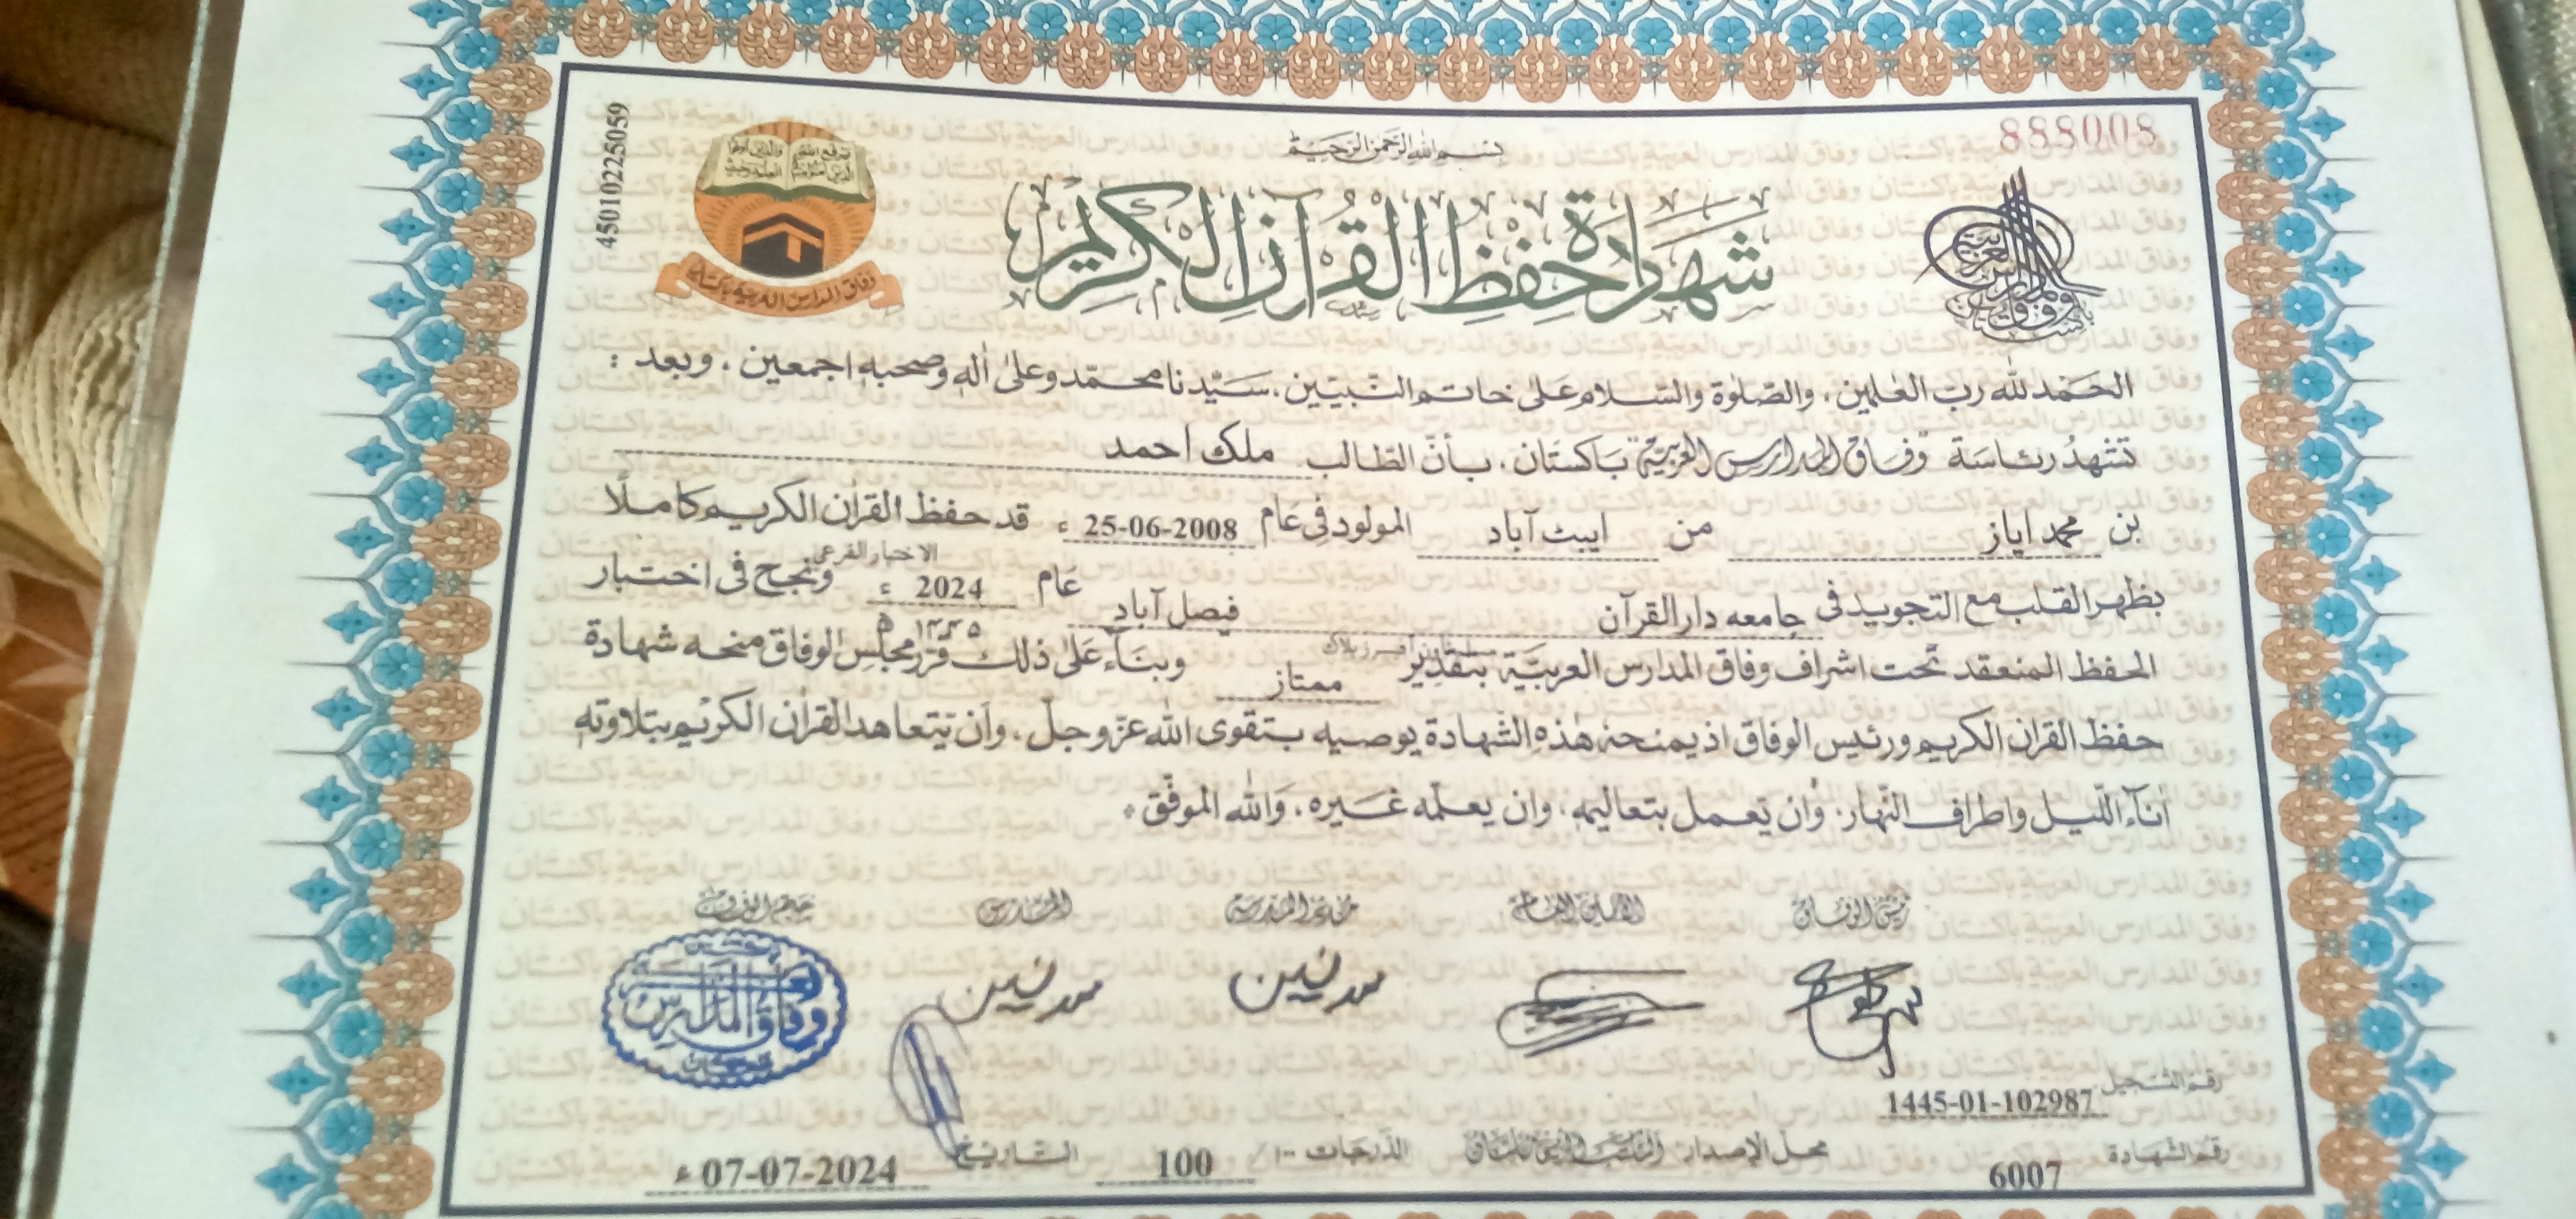 888008
بسم الله الرحمن الرحيم
45010225059
شهادة حفظ القرآن الكريم
وفاق المدارس العربية باكستان
الحمد لله رب العلمين، والصلوة والسلام على خاتم النبيين، سيدنا محمد وعلى اله وصحبه اجمعين، وبعد :
تشهد رئاسة وفاق المدارس العربية باكستان، بأن الطالب ملك احمد
بن محمد اياز من ايبٹ آباد المولود في عام 25-06-2008 ء قد حفظ القران الكريم كاملا
بظهر القلب مع التجويد في جامعه دار القرآن فيصل آباد عام 2024 ء ونجح في اختبار
الاختبار الفرعي
١٤٤٥ ھ
الحفظ المنعقد تحت اشراف وفاق المدارس العربية بتقدير ممتاز وبناء على ذلك قرر مجلس الوفاق منحه شهادة
حفظ القران الكريم ورئيس الوفاق اذ يمنحه هذه الشهادة يوصيه بتقوى الله عز وجل، وان يتعاهد القران الكريم بتلاوته
اناء الليل واطراف النهار، وان يعمل بتعاليمه، وان يعلمه غيره، والله الموفق
رئيس الوفاق الامين العام المدرس خاتم الوفاق
وفاق المدارس
رقم التسجيل 1445-01-102987
رقم الشهادة 6007 محل الإصدار الدرجات ١٠٠/ 100 التاريخ 07-07-2024 ء